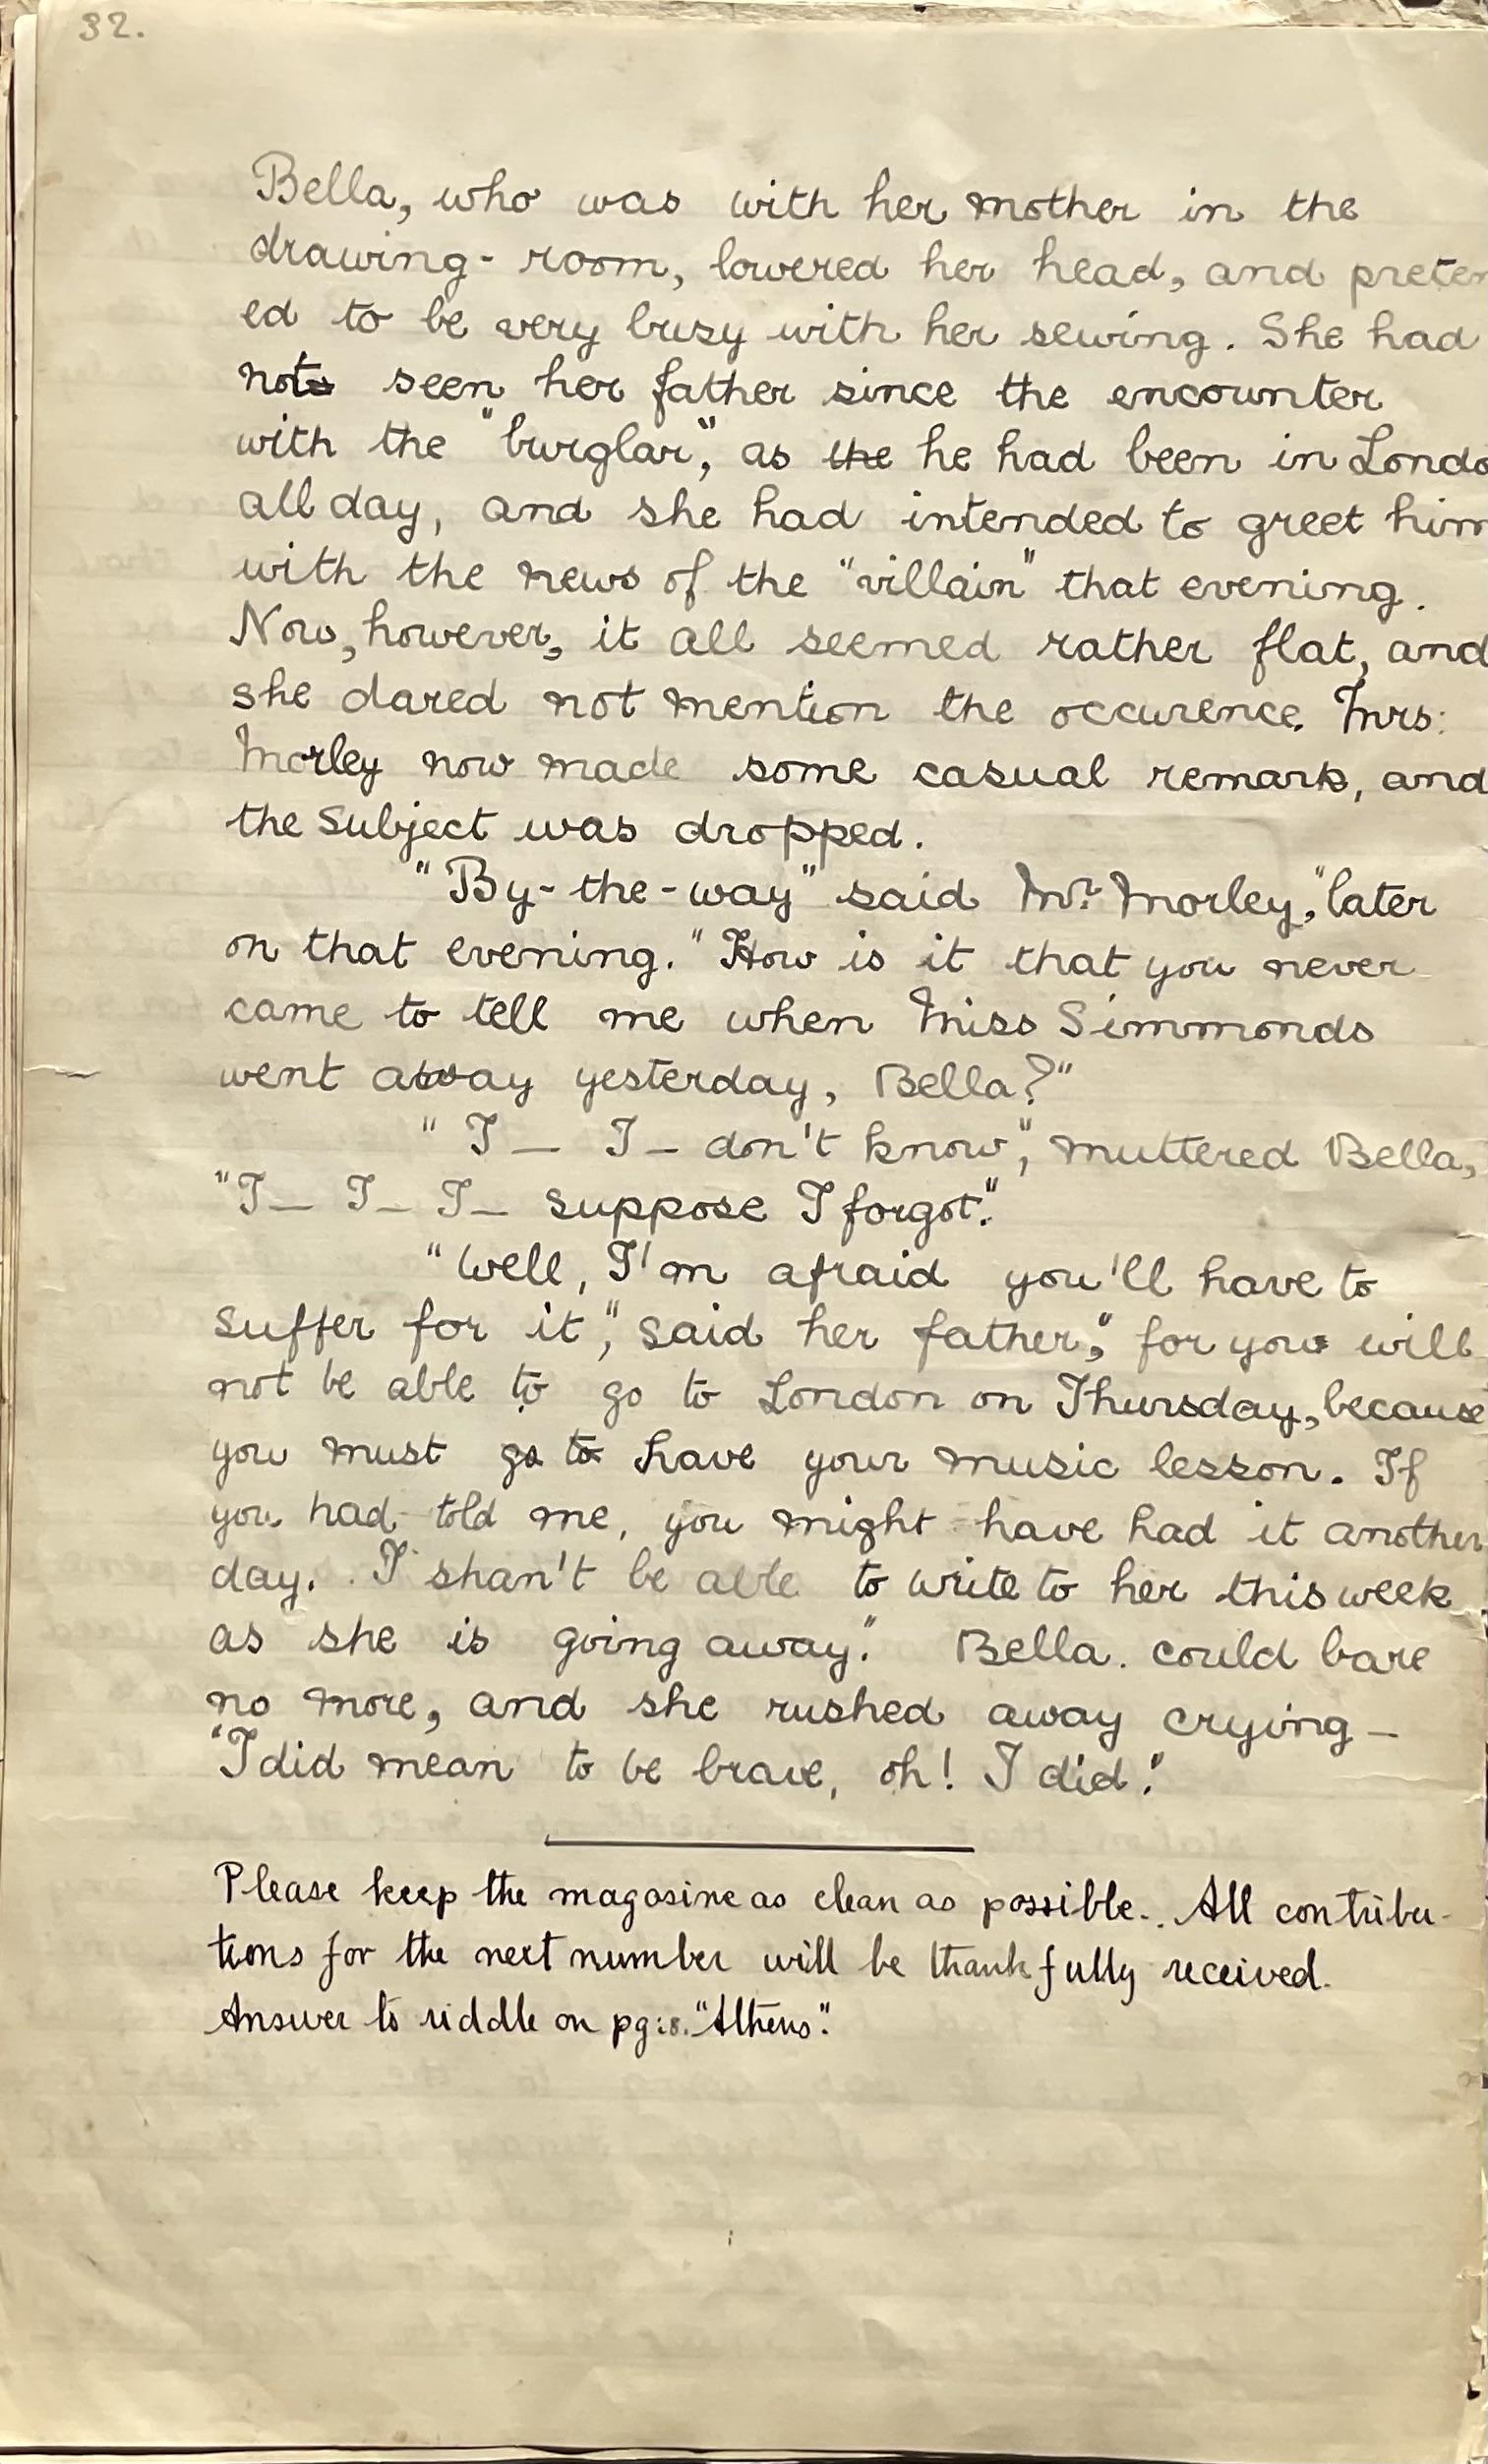 32.
Bella, who was with her mother in the
drawing-room, lowered her head, and preten
ed to be very busy with her sewing. She had
not seen her father since the encounter
with the "burglar", as the he had been in Londo
all day, and she had intended to greet him
with the news of the "villain" that evening.
Now, however, it all seemed rather flat, and
she dared not mention the occurence. Mrs:
Morley now made some casual remark, and
the subject was dropped.
"By-the-way" said Mr. Morley," later
on that evening. "How is it that you never
came to tell me when Miss Simmonds
went away yesterday, Bella?"
"I— I— don't know", muttered Bella,
"I— I— I— suppose I forgot."
"Well, I'm afraid you'll have to
suffer for it," said her father," for you will
not be able to go to London on Thursday, because
you must go to have your music lesson. If
you had told me, you might have had it another
day. I shan't be able to write to her this week
as she is going away." Bella. could bare
no more, and she rushed away crying —
"I did mean to be brave, oh! I did."
Please keep the magasine as clean as possible. All contribu-
tions for the next number will be thankfully received.
Answer to riddle on pg:8. "Athens".